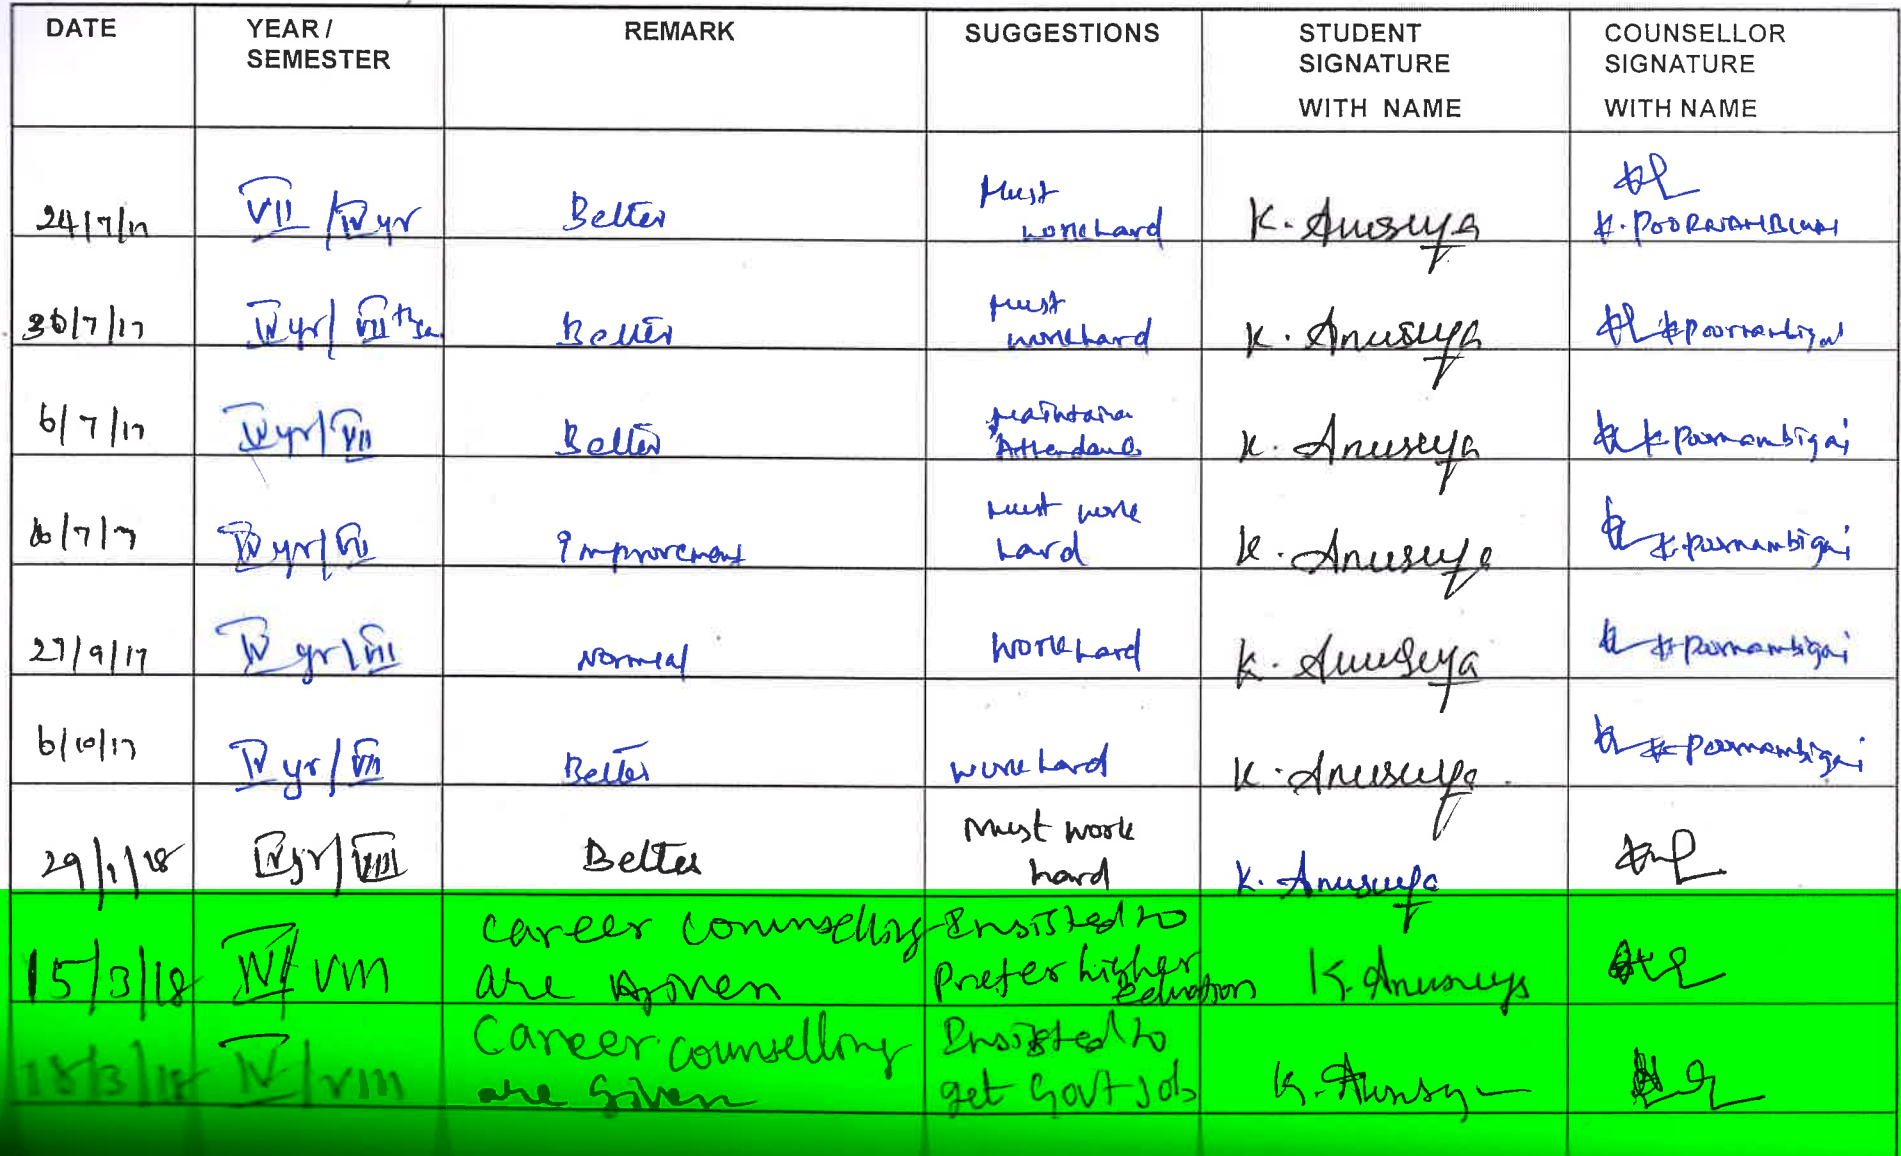 DATE YEAR / SEMESTER REMARK SUGGESTIONS STUDENT SIGNATURE WITH NAME COUNSELLOR SIGNATURE WITH NAME
24/7/17 VII / IV yr Better Must work hard K. Anusuya K. POORNAMBIGAI
IV yr / VII th Better Must work hard K. Anusuya K Poornambigai
6/7/17 IV yr / VII Better Maintain Attendance K. Anusuya K Poornambigai
IV yr / Improvement Must work hard K. Anusuya K. Poornambigai
27/9/17 IV yr / VII Normal Work hard K. Anusuya K Poornambigai
6/10/17 IV yr / VII Better Work hard K. Anusuya K Poornambigai
29/1/18 IV yr / VIII Better Must work hard K. Anusuya
15/3/18 IV / VIII Career counselling are given Insisted to Prefer higher Education K. Anusuya
18/3/18 IV / VIII Career counselling are given Insisted to get Govt Job K. Anusuya